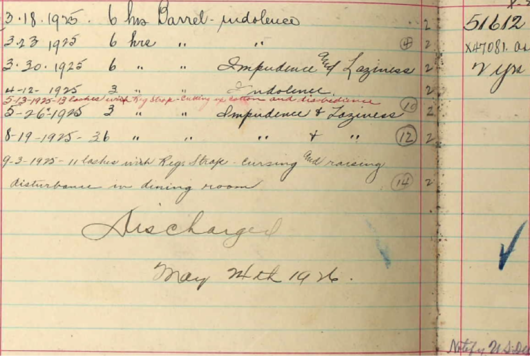 3-18-1925. 6 hrs Barrel-indolence 2
3-23 1925 6 hrs " " 4 2
3-30-1925 6 " " Impudence and Laziness 2
4-12-1925 3 " Indolence. 2
5-13-1925-13 lashes with Reg Strap-Cutting up cotton and disobedience 10
5-26-1925 3 " " Impudence & Laziness 2
8-19-1925-36 " " " & " 12 2
9-2-1925-11 lashes with Regr Strap. Cursing and raising
disturbance in dining room 14 2
Discharged
May 24th 1926.
51612
X47081.
2 yrs
Notify